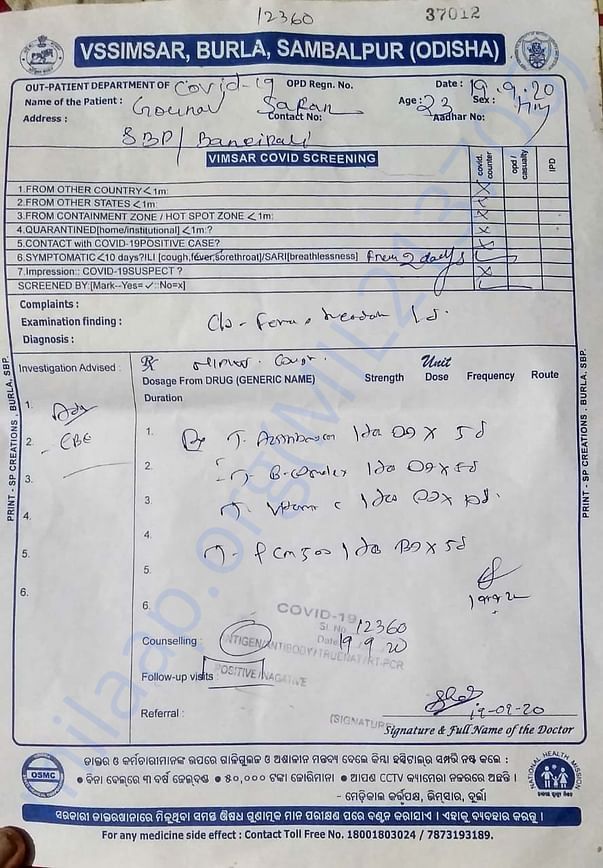 12360
37012
VSSIMSAR, BURLA, SAMBALPUR (ODISHA)
OUT-PATIENT DEPARTMENT OF Covid-19 OPD Regn. No. Date : 19.9.20
Name of the Patient : Age : 23 Sex :
Address : Contact No: Aadhar No:
SBP/
VIMSAR COVID SCREENING
covid. counter
opd / casualty
IPD
1.FROM OTHER COUNTRY<1m: x
2.FROM OTHER STATES <1m: x
3.FROM CONTAINMENT ZONE / HOT SPOT ZONE <1m: x
4.QUARANTINED[home/institutional] <1m:? x
5.CONTACT with COVID-19POSITIVE CASE? x
6.SYMPTOMATIC <10 days?ILI [cough,fever,sorethroat]/SARI[breathlessness] from 2 days
7.Impression:: COVID-19SUSPECT ? x
SCREENED BY:[Mark--Yes= ✓::No=x]
Complaints :
Examination finding :
Diagnosis :
Investigation Advised :
Dosage From DRUG (GENERIC NAME) Strength Unit Dose Frequency Route
Duration
1. Adv
2. - CBC
3.
4.
5.
6.
1. 1 x 5d
2. T. B-complex 1 x 5d
3. T. Vitamin C 1
4. T. PCM 500 1 x 5d
5.
6.
COVID-19
Sl. No. 12360
Date 19.9.20
Counselling :
ANTIGEN/ANTIBODY/TRUENAT/RT-PCR
Follow-up visits :
POSITIVE/NAGATIVE
Referral :
(SIGNATURE
19-09-20
Signature & Full Name of the Doctor
PRINT - SP CREATIONS , BURLA, SBP.
PRINT - SP CREATIONS . BURLA, SBP.
milaap.org(MIL243706)
OSMC
ଡାକ୍ତର ଓ କର୍ମଚାରୀମାନଙ୍କ ଉପରେ ଗାଳିଗୁଲଜ ଓ ଅଶାଳୀନ ମନ୍ତବ୍ୟ ଦେଲେ କିମ୍ବା ହସ୍ପିଟାଲ୍‌ର ସମ୍ପତି ନଷ୍ଟ କଲେ :
• ବିନା ବେଲ୍‌ରେ ୩ ବର୍ଷ ଜେଲ୍‌ଦଣ୍ଡ • ୫୦,୦୦୦ ଟଙ୍କା ଜୋରିମାନା • ଆପଣ CCTV କ୍ୟାମେରା ନଜରରେ ଅଛନ୍ତି ।
- ମେଡ଼ିକାଲ କର୍ତ୍ତୃପକ୍ଷ, ଭିମ୍‌ସାର, ବୁର୍ଲା
NATIONAL HEALTH MISSION
ସରକାରୀ ଡାକ୍ତରଖାନାରେ ମିଳୁଥିବା ସମସ୍ତ ଔଷଧ ଗୁଣାତ୍ମକ ମାନ ପରୀକ୍ଷଣ ପରେ ବଣ୍ଟନ କରାଯାଏ । ଏହାକୁ ବ୍ୟବହାର କରନ୍ତୁ ।
For any medicine side effect : Contact Toll Free No. 18001803024 / 7873193189.